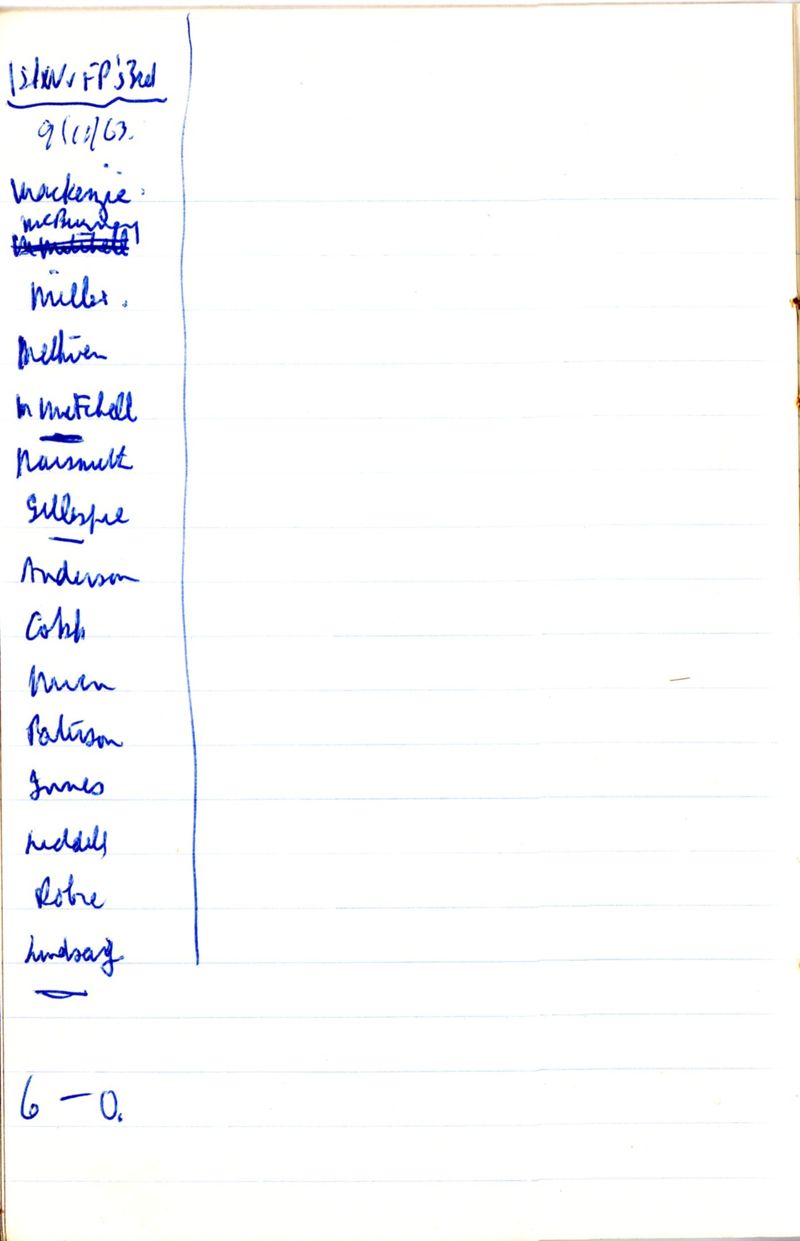 1st XV v FP's 3rd
9/11/63.
Mackenzie
McBurney
M Mitchell
Miller.
Methven
M Mitchell
Naismith
Gillespie
Anderson
Cobb
Niven
Paterson
Innes
Liddell
Robie
Lindsay
6 – 0.